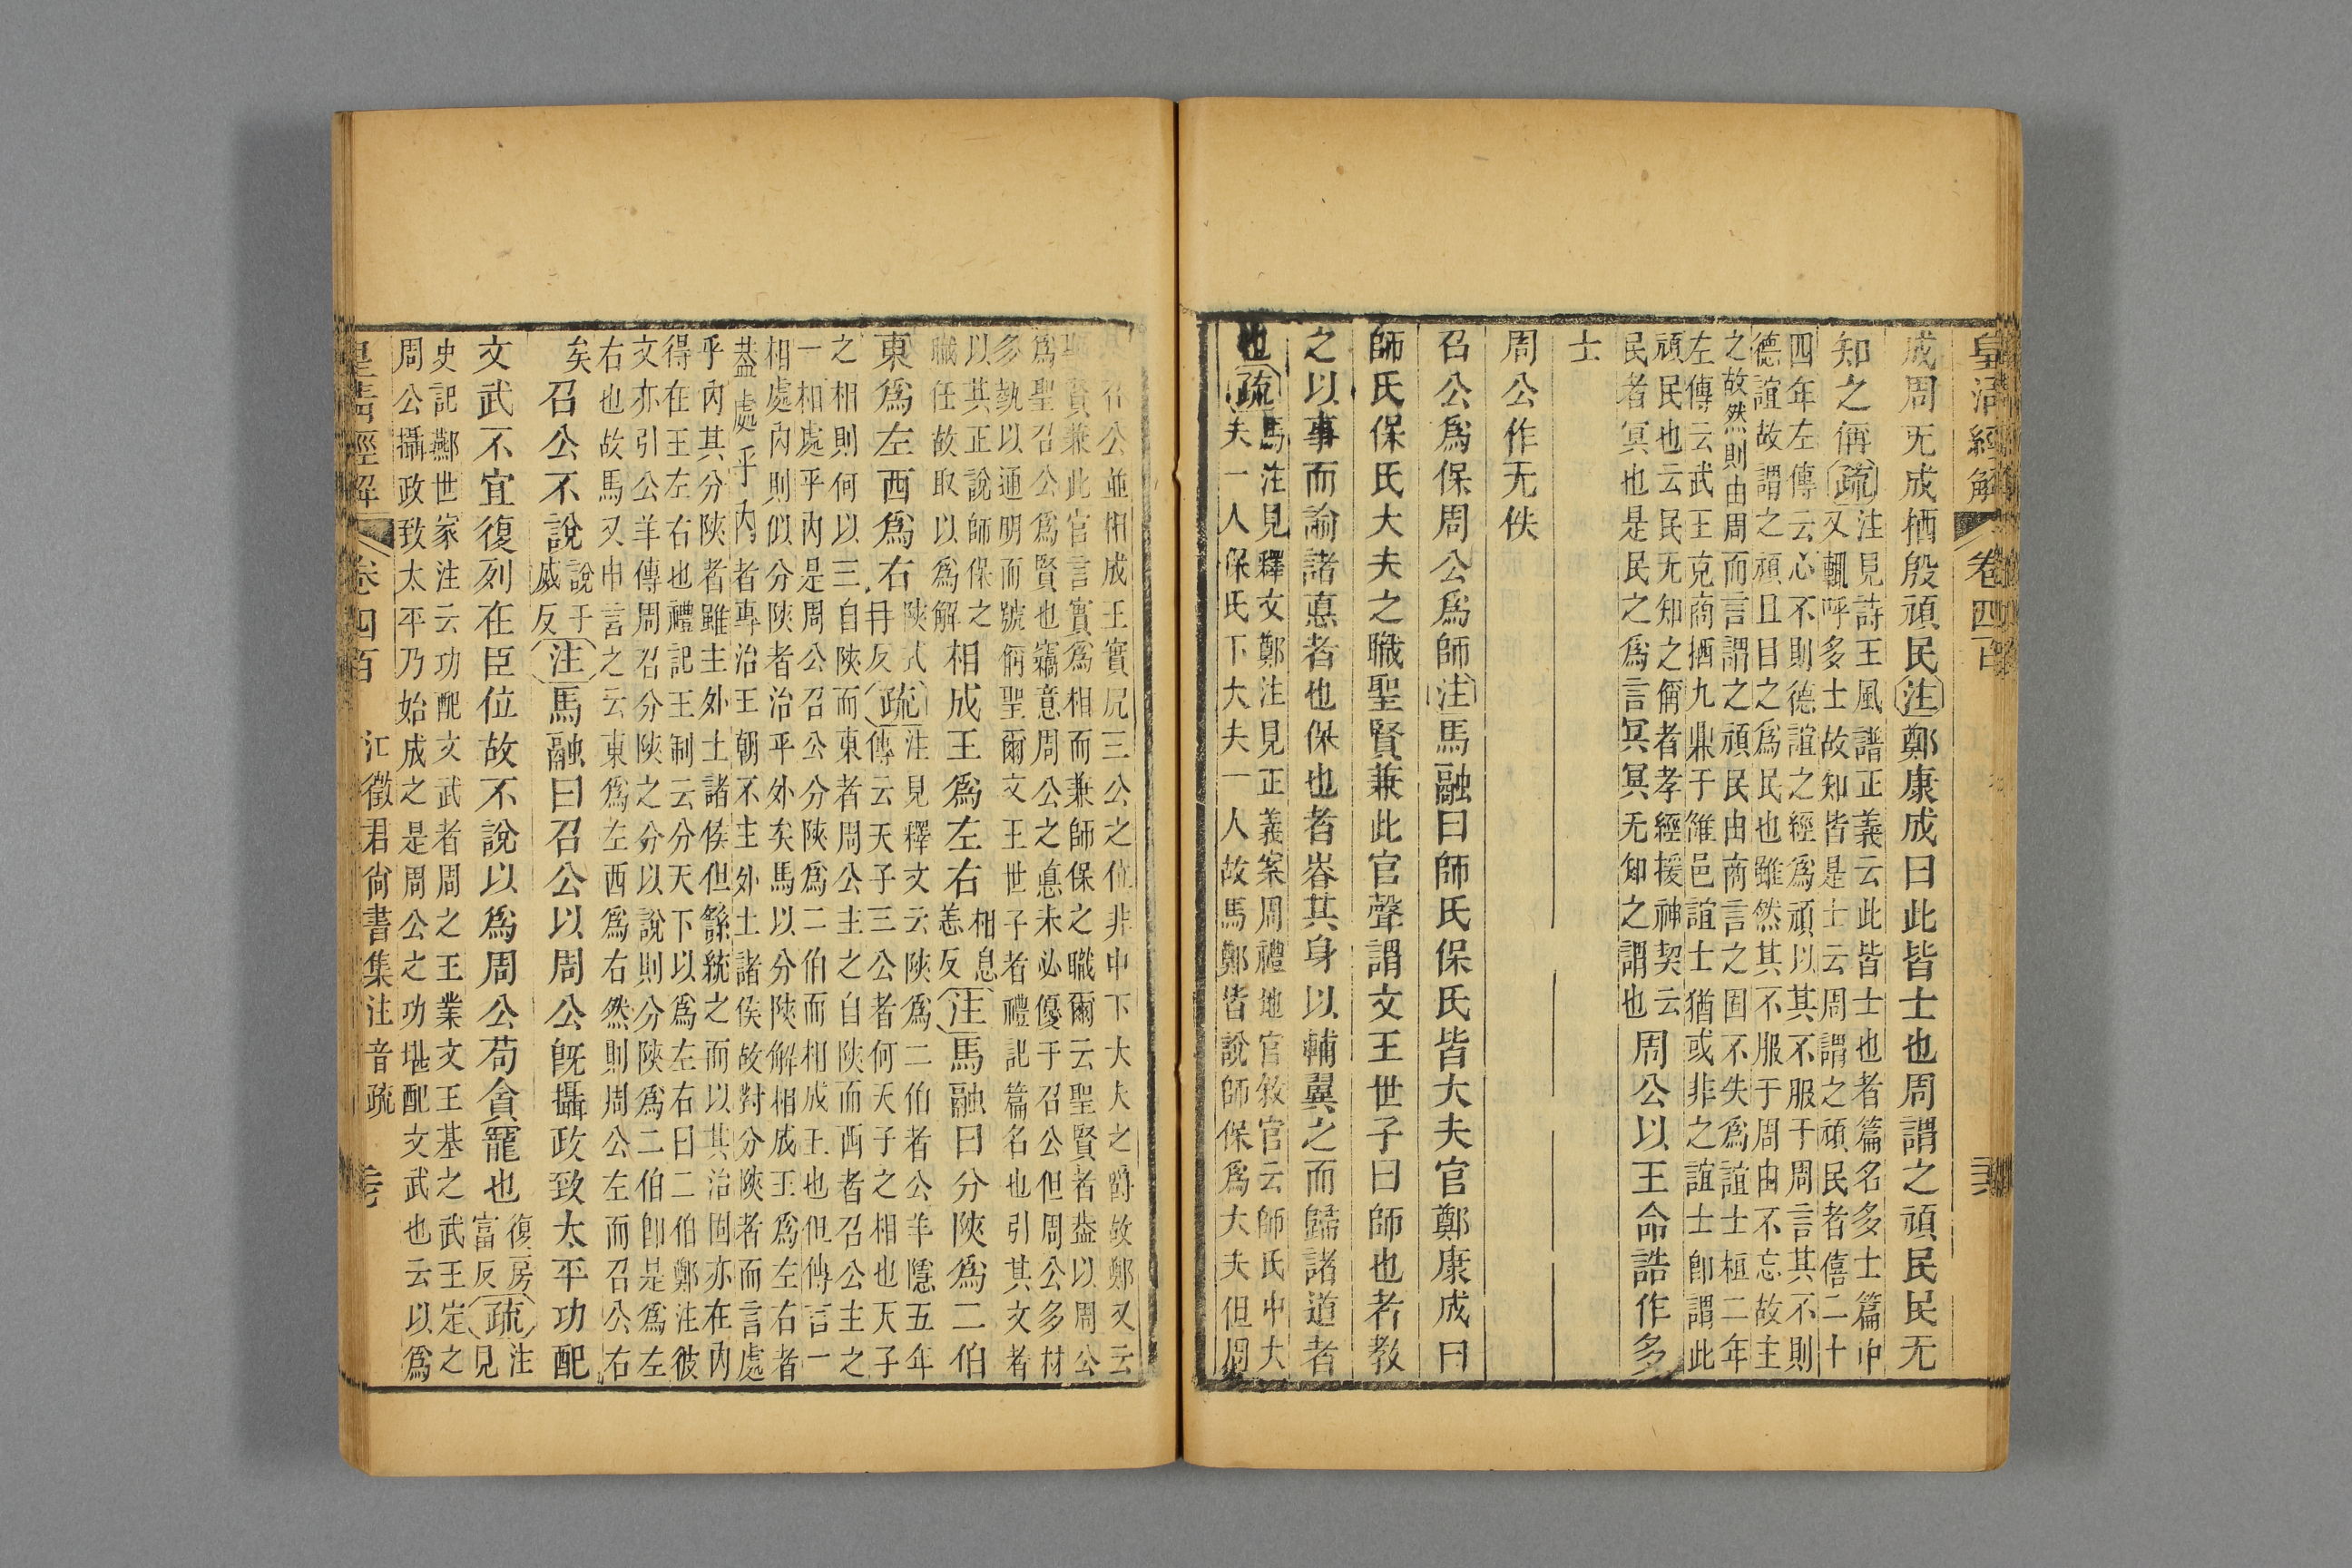 皇清經解 卷四百
成周旡成㮋殷頑民注鄭康成曰此皆士也周謂之頑民民无
知之偁疏注見詩王風譜正義云此皆士也者篇名多士篇中
又輒呼多士故知皆是士云周謂之頑民者僖二十
四年左傳云心不則德誼之經爲頑以其不服于周言其不則
德誼故謂之頑且目之爲民也雖然其不服于周由不忘故主
之故然則由周而言謂之頑民由商言之固不失爲誼士桓二年
左傳云武王克商㮋九鼎于雒邑誼士猶或非之誼士卽謂此
頑民也云民无知之偁者孝經援神契云
民者冥也是民之爲言冥冥无知之謂也周公以王命誥作多
士
周公作无佚
召公爲保周公爲師注馬融曰師氏保氏皆大夫官鄭康成曰
師氏保氏大夫之職聖賢兼此官聲謂文王世子曰師也者教
之以事而諭諸悳者也保也者昚其身以輔翼之而歸諸道者
也疏馬注見釋文鄭注見正義案周禮地官敘官云師氏中大
夫一人保氏下大夫一人故馬鄭皆說師保爲大夫但周
召公並相成王實凥三公之位非中下大夫之爵故鄭又云
聖賢兼此官言實爲相而兼師保之職爾云聖賢者葢以周公
爲聖召公爲賢也竊意周公之悳未必優于召公但周公多材
多埶以通明而號偁聖爾文王世子者禮記篇名也引其文者
以其正說師保之
職任故取以爲解相成王爲左右相息
恙反注馬融曰分陝爲二伯
東爲左西爲右陝式
冄反疏注見釋文云陝爲二伯者公羊隱五年
傳云天子三公者何天子之相也天子
之相則何以三自陝而東者周公主之自陝而西者召公主之
一相處乎內是周公召公分陝爲二伯而相成王也但傳言一
相處內則似分陝者治平外矣馬以分陝解相成王爲左右者
葢處乎內者專治王朝不主外土諸侯故對分陝者而言處
乎內其分陝者雖主外土諸侯但繇統之而以其治固亦在內
得在王左右也禮記王制云分天下以爲左右曰二伯鄭注彼
文亦引公羊傳周召分陝之分以說則分陝爲二伯卽是爲左
右也故馬又申言之云東爲左西爲右然則周公左而召公右
矣召公不說說于
威反注馬融曰召公以周公旣攝政致太平功配
文武不宜復列在臣位故不說以爲周公苟貪寵也復房
富反疏注
見
史記燕世家注云功配文武者周之王業文王基之武王定之
周公攝政致太平乃始成之是周公之功堪配文武也云以爲
皇清經解 卷四百 江徵君尙書集注音疏